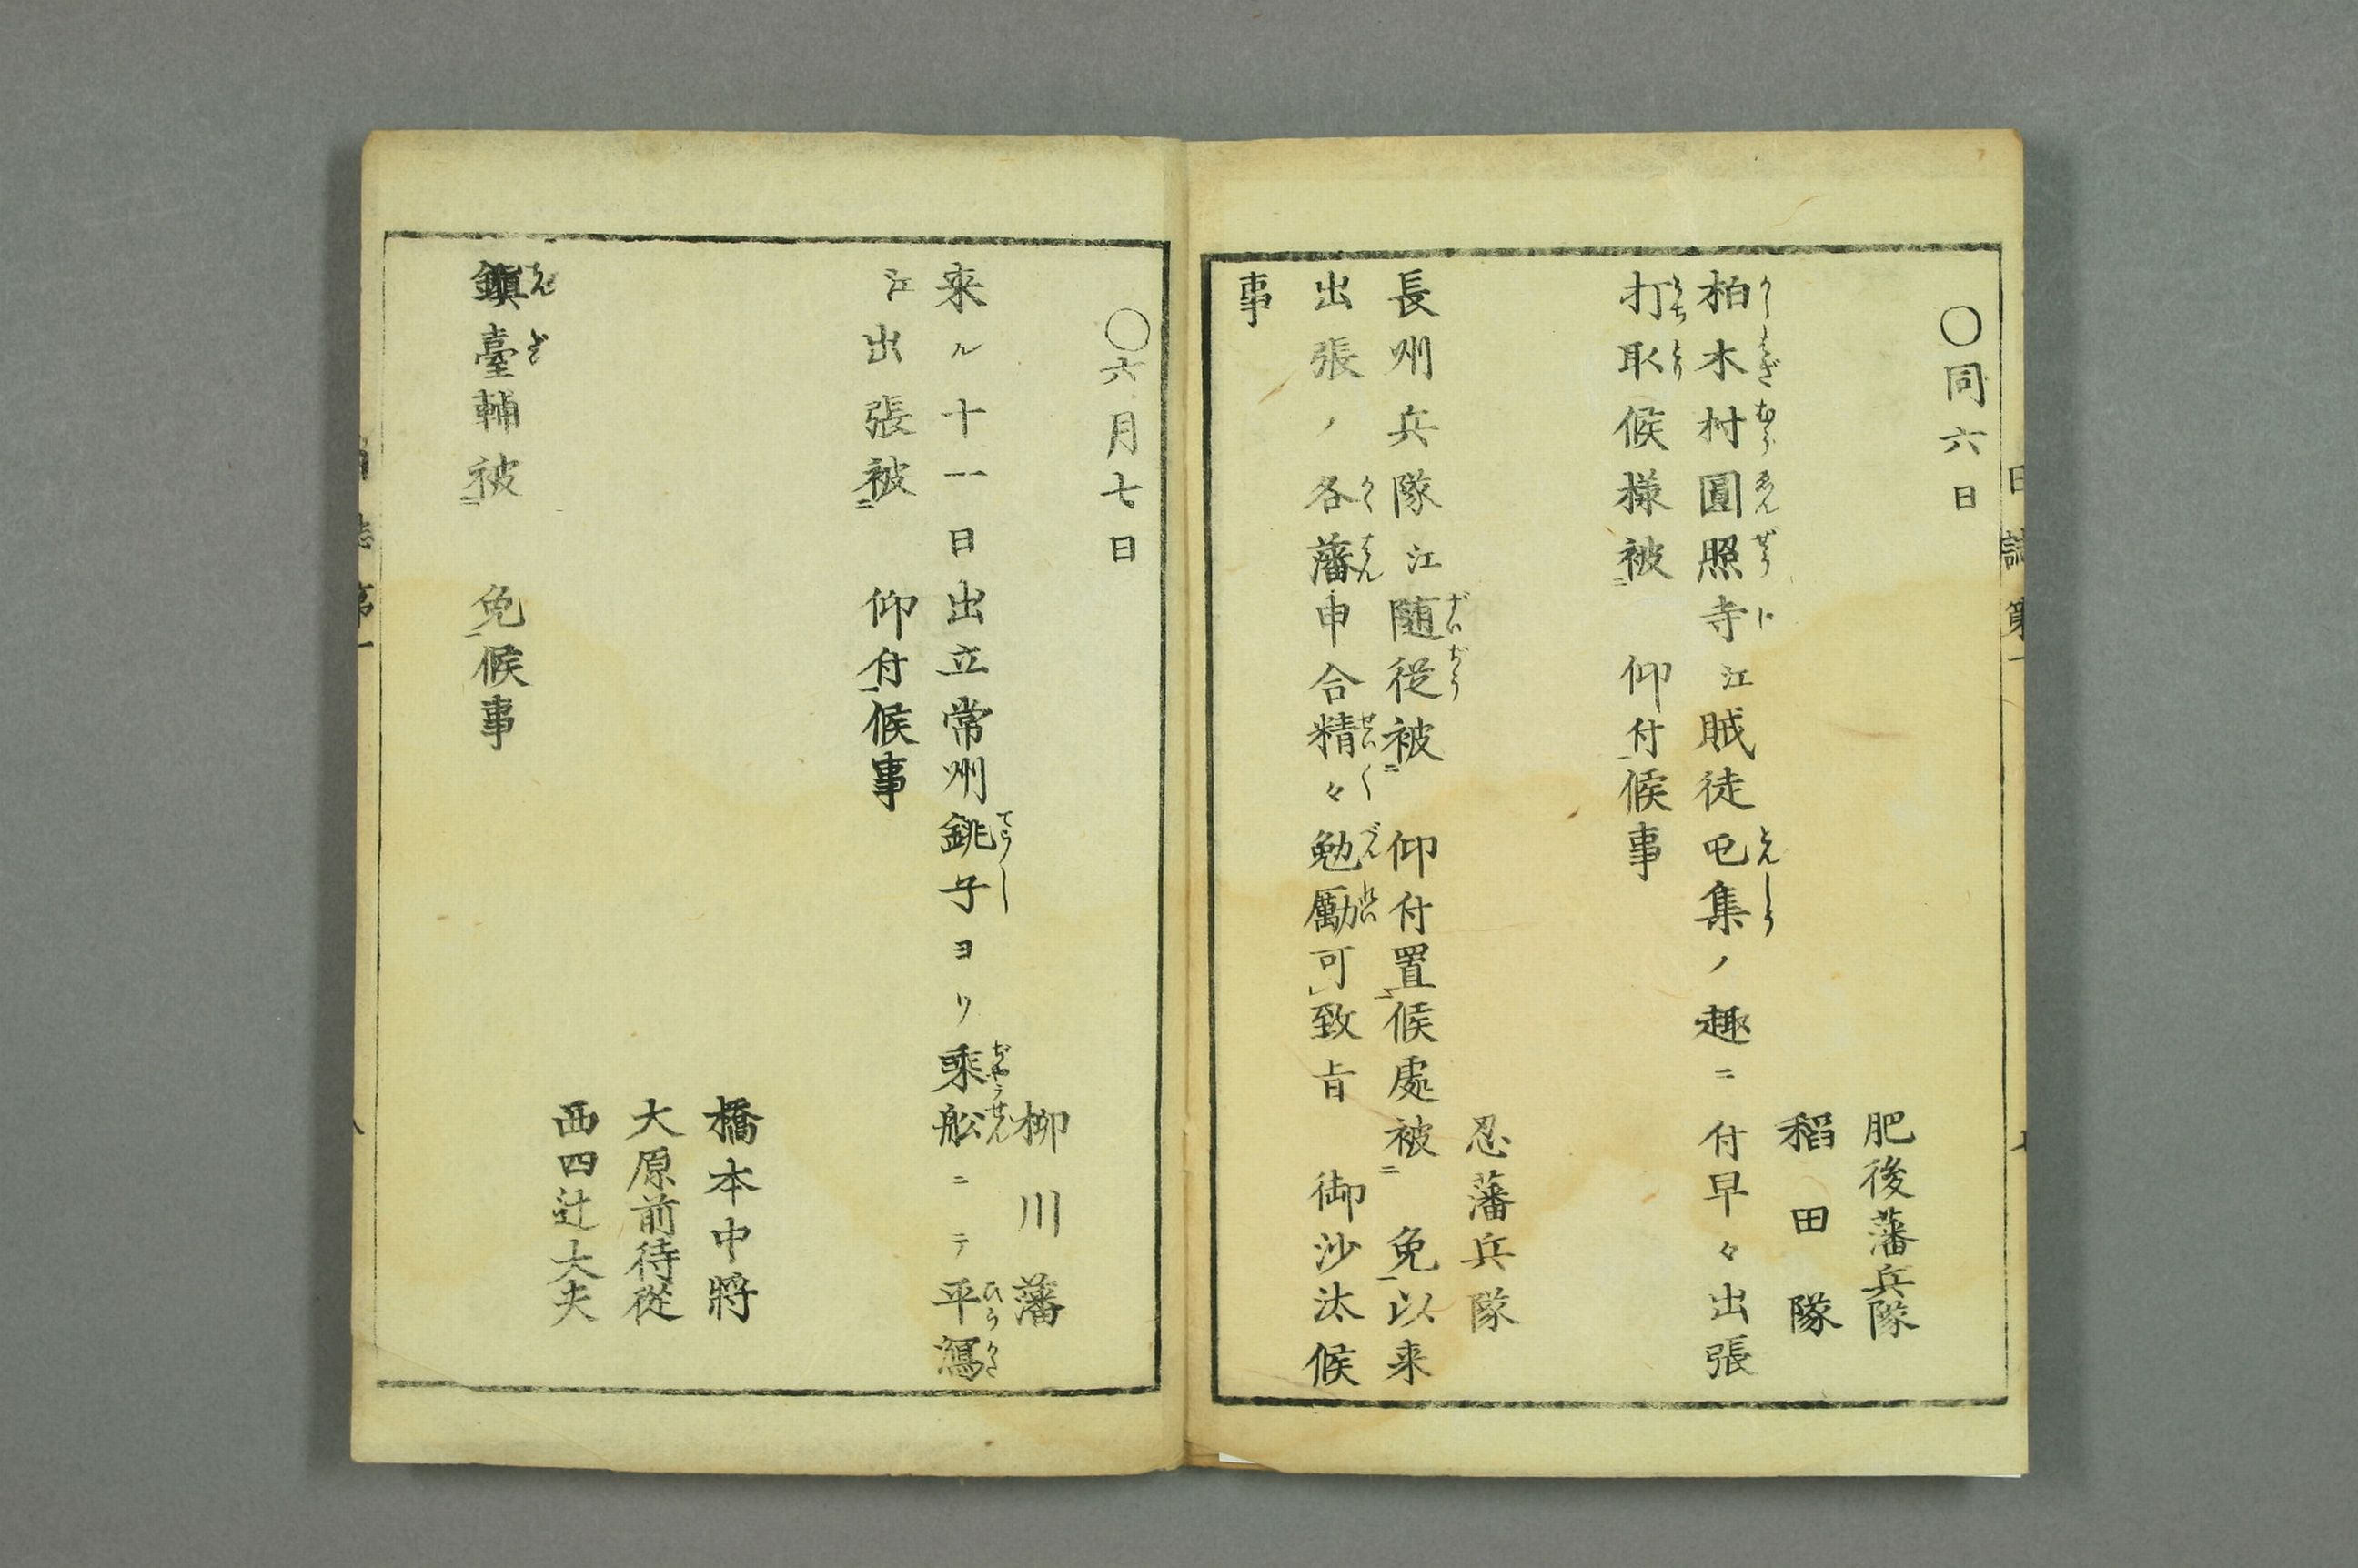 〇同六日
肥後藩兵隊
稻田隊
柏木村圓照寺江賊徒屯集ノ趣ニ付早々出張
打取候様被仰付候事
忍藩兵隊
長州兵隊江随従被仰付置候處被免以来
出張ノ各藩申合精々勉勵可致旨御沙汰候
事
〇六月七日
柳川藩
来ル十一日出立常州銚子ヨリ乗舩ニテ平潟
江出張被仰付候事
橋本中將
大原前侍從
西四辻大夫
鎭臺輔被免候事